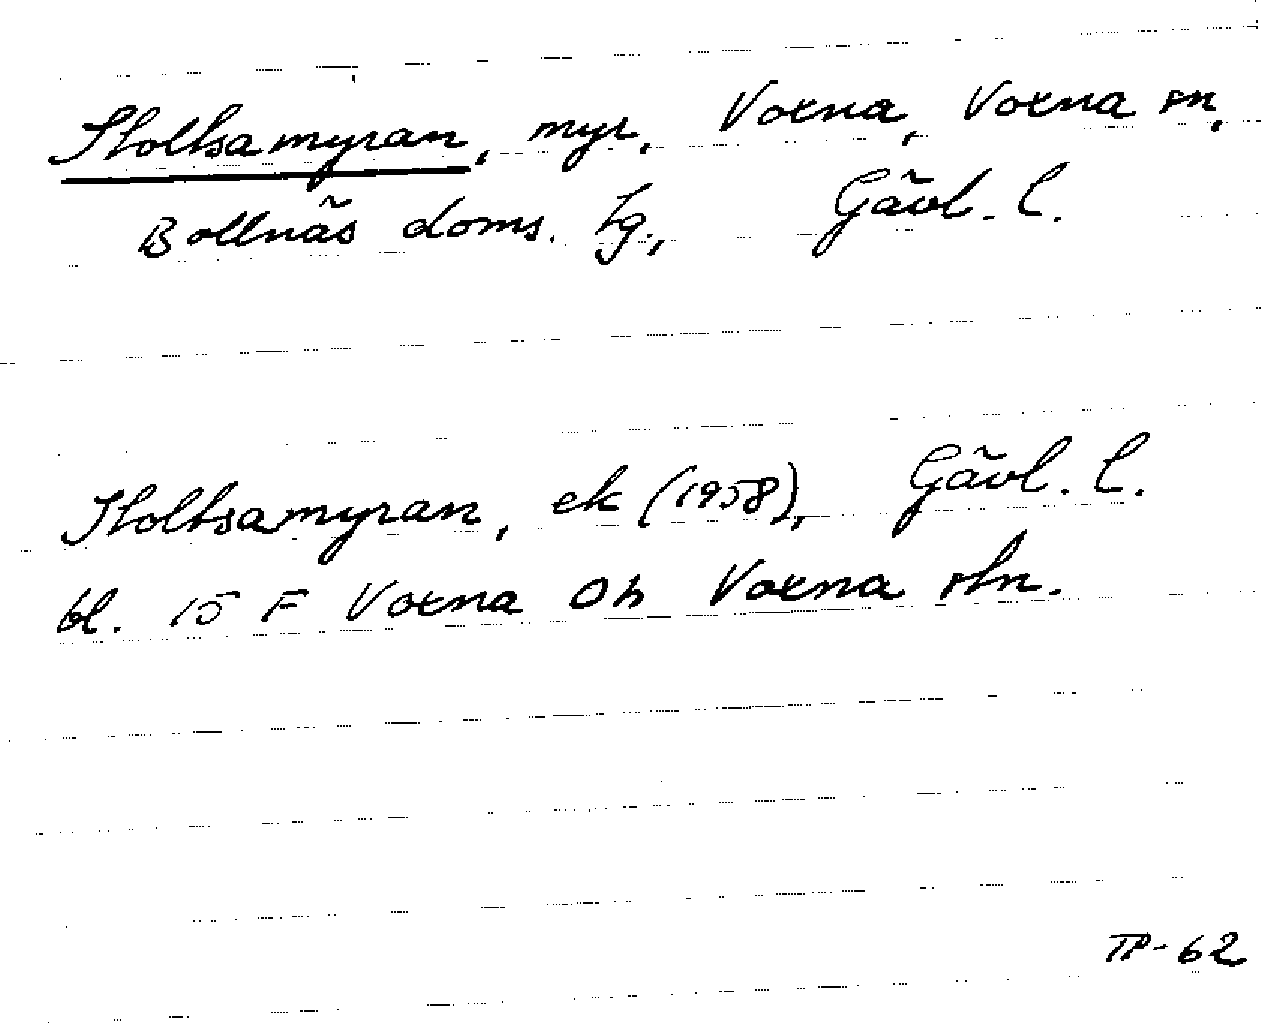 Stoltsamyran, myr, Voxna, Voxna sn,
Bollnäs doms. tg., Gävl. l.
Stoltsamyran, ek (1958), Gävl. l.
bl. 15 F Voxna Öh Voxna sln.
TP-62